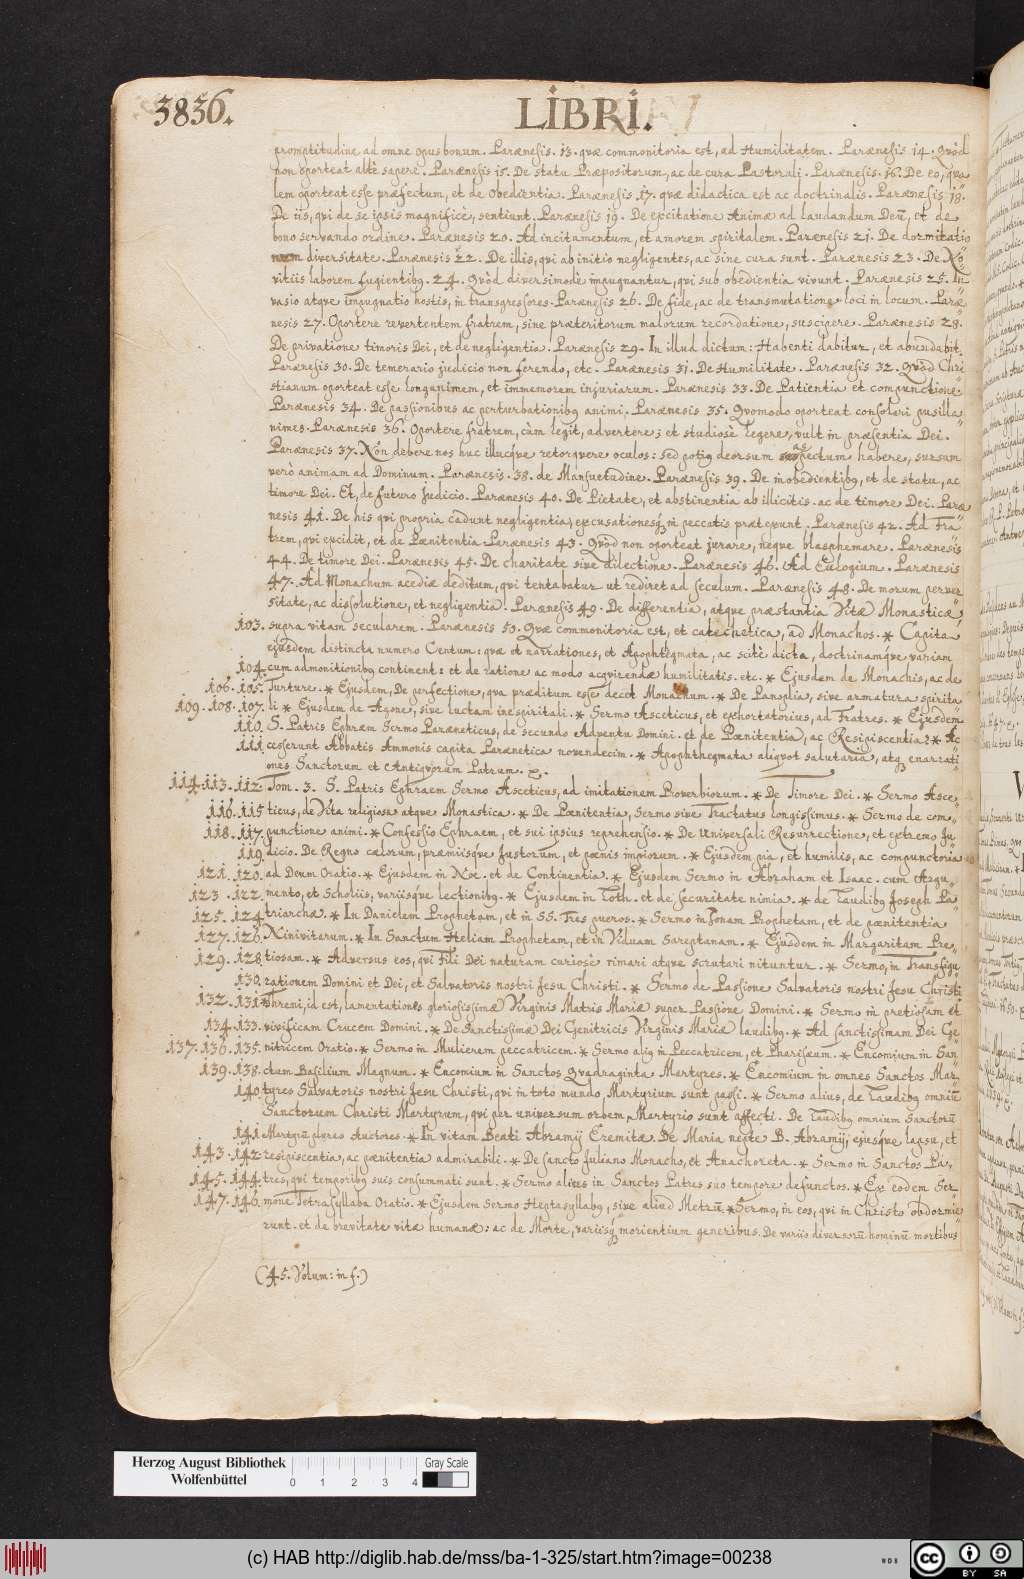 3836.
LIBRI.
promptitudine ad omne opus bonum. Parænesis. 13. quæ commonitoria est, ad Humilitatem. Parænesis 14. Quòd
non oporteat altè sapere. Parænesis 15. De statu Præpositorum, ac de cura Pastorali. Parænesis. 16. De eo, qua
lem oporteat esse præfectum, et de Obedientia. Parænesis 17. quæ didactica est ac doctrinalis. Parænesis 18.
De iis, qui de se ipsis magnificè, sentiunt. Parænesis 19. De excitatione Animæ ad laudandum Deū, et de
bono servando ordine. Parænesis 20. Ad incitamentum, et amorem spiritalem. Parænesis 21. De dormitatio
num diversitate. Parænesis 22. De illis, qui ab initio negligentes, ac sine cura sunt. Parænesis 23. De No
vitiis laborem fugientibꝫ. 24. Quòd diversimodè impugnantur, qui sub obedientia vivunt. Parænesis 25. In
vasio atqve impugnatio hostis, in transgressores. Parænesis 26. De fide, ac de transmutatione loci in locum. Paræ
nesis 27. Oportere revertentem fratrem, sine præteritorum malorum recordatione, suscipere. Parænesis 28.
De privatione timoris Dei, et de negligentia. Parænesis 29. In illud dictum: Habenti dabitur, et abundabit.
Parænesis 30. De temerario judicio non ferendo, etc. Parænesis 31. De Humilitate. Parænesis 32. Quòd Chri
stianum oporteat esse longanimem, et immemorem injuriarum. Parænesis 33. De Patientia et compunctione.
Parænesis 34. De passionibus ac perturbationibꝫ animi. Parænesis 35. Quomodo oporteat consolari pusilla
nimes. Parænesis 36. Oportere fratrem, cùm legit, advertere; et studiosè legere, vult in præsentia Dei.
Parænesis 37. Non debere nos huc illucqve retorqvere oculos: sed potiꝫ deorsum aspectum habere, sursum
verò animam ad Dominum. Parænesis. 38. de Mansuetudine. Parænesis 39. De inobedientibꝫ, et de statu, ac
timore Dei. Et, de futuro Judicio. Parænesis 40. De Pietate, et abstinentia ab illicitis. ac de timore Dei. Paræ
nesis 41. De his qui propria cadunt negligentia, excusationesqꝫ in peccatis prætexunt. Parænesis 42. Ad Fra
trem, qui excidit, et de Pœnitentia Parænesis 43. Quòd non oporteat jurare, neqve blasphemare. Parænesis
44. De timore Dei. Parænesis 45. De charitate sive dilectione. Parænesis 46. Ad Eulogium. Parænesis
47. Ad Monachum acediæ deditum, qui tentabatur ut rediret ad seculum. Parænesis 48. De morum perver
sitate, ac dissolutione, et negligentia. Parænesis 49. De differentia, atqve præstantia Vitæ Monasticæ,
103. supra vitam secularem. Parænesis 50. Quæ commonitoria est, et catechetica, ad Monachos. * Capita
ejusdem distincta numero Centum: quæ et narrationes, et Apophthegmata, ac scitè dicta, doctrinamqve variam
104. cum admonitionibꝫ continent: et de ratione ac modo acqvirendæ humilitatis. etc. * Ejusdem de Monachis, ac de
106. 105. Turture. * Ejusdem, De perfectione, qva præditum esse decet Monachum. * De Panoplia, sive armatura spirita
109. 108. 107. li * Ejusdem de Agone, sive luctam in spiritali. * Sermo Asceticus, et exhortatorius, ad Fratres. * Ejusdem
110. S. Patris Ephræm Sermo Paræneticus, de secundo Adventu Domini. et de Pœnitentia, ac Resipiscentia. * Ac
111. cesserunt Abbatis Ammonis capita Parænetica novendecim. * Apophthegmata aliqvot salutaria, atqꝫ enarrati
ones Sanctorum et Antiqvorum Patrum.
114. 113. 112. Tom. 3. S. Patris Ephraem Sermo Asceticus, ad imitationem Proverbiorum. * De Timore Dei. * Sermo Asce
116. 115 ticus, de Vita religiosa atqve Monastica. * De Pœnitentia, Sermo sive Tractatus longissimus. * Sermo de com
118. 117. punctione animi. * Confessio Ephraem, et sui ipsius reprehensio. * De Universali Resurrectione, et extremo Ju
119. dicio. De Regno cælorum, præmiisqve Justorum, et pœnis impiorum. * Ejusdem pia, et humilis, ac compunctoria
121. 120. ad Deum Oratio. * Ejusdem in Noë. et de Continentia. * Ejusdem Sermo in Abraham et Isaac. cum Argu
123. 122. mento, et Scholiis, variisqve lectionibꝫ. * Ejusdem in Loth. et de securitate nimia. * de Laudibꝫ Joseph Pa
125. 124. triarcha. * In Danielem Prophetam, et in SS. Tres pueros. * Sermo in Jonam Prophetam, et de pœnitentia
127. 126. Ninivitarum. * In Sanctum Heliam Prophetam, et in Viduam Sareptanam. * Ejusdem in Margaritam Pre
129. 128. tiosam. * Adversus eos, qui Filii Dei naturam curiosè rimari atqve scrutari nituntur. * Sermo, in Transfigu
130. rationem Domini et Dei, et Salvatoris nostri Jesu Christi. * Sermo de Passione Salvatoris nostri Jesu Christi
132. 131. Threni, id est, lamentationes gloriosissimæ Virginis Matris Mariæ super Passione Domini. * Sermo in pretiosam et
134. 133. vivificam Crucem Domini. * De Sanctissimæ Dei Genitricis Virginis Mariæ laudibꝫ. * Ad sanctissimam Dei Ge
137. 136. 135. nitricem Oratio. * Sermo in Mulierem peccatricem. * Sermo aliꝫ in Peccatricem, et Pharisæum. * Encomium in San
139. 138. ctum Basilium Magnum. * Encomium in Sanctos Qvadraginta Martyres. * Encomium in omnes Sanctos Mar
140. tyres Salvatoris nostri Jesu Christi, qvi in toto mundo Martyrium sunt passi. * Sermo alius, de Laudibꝫ omniū
Sanctorum Christi Martyrum, qvi per universum orbem, Martyrio sunt affecti. De Laudibꝫ omnium Sanctorū
141. Martyrū plures Auctores. * In vitam Beati Abramij Eremitæ. De Maria nepte B. Abramij, ejusqve lapsu, et
143. 142 resipiscentia, ac pœnitentia admirabili. * De Sancto Juliano Monacho, et Anachoreta. * Sermo in Sanctos Pa
145. 144. tres, qvi temporibꝫ suis consummati sunt. * Sermo alius in Sanctos Patres suo tempore defunctos. * Ex eodem Ser
147. 146. mone Tetrasyllaba Oratio. * Ejusdem Sermo Heptasyllabꝫ, sive aliud Metrū. * Sermo, in eos, qvi in Christo obdormie
runt. et de brevitate vitæ humanæ: ac de Morte, variisqꝫ morientium generibus. De variis diversorū hominū mortibus
(45. Volum: in f.)
Herzog August Bibliothek
Wolfenbüttel
0 1 2 3 4
Gray Scale
(c) HAB http://diglib.hab.de/mss/ba-1-325/start.htm?image=00238
WDB
cc BY SA